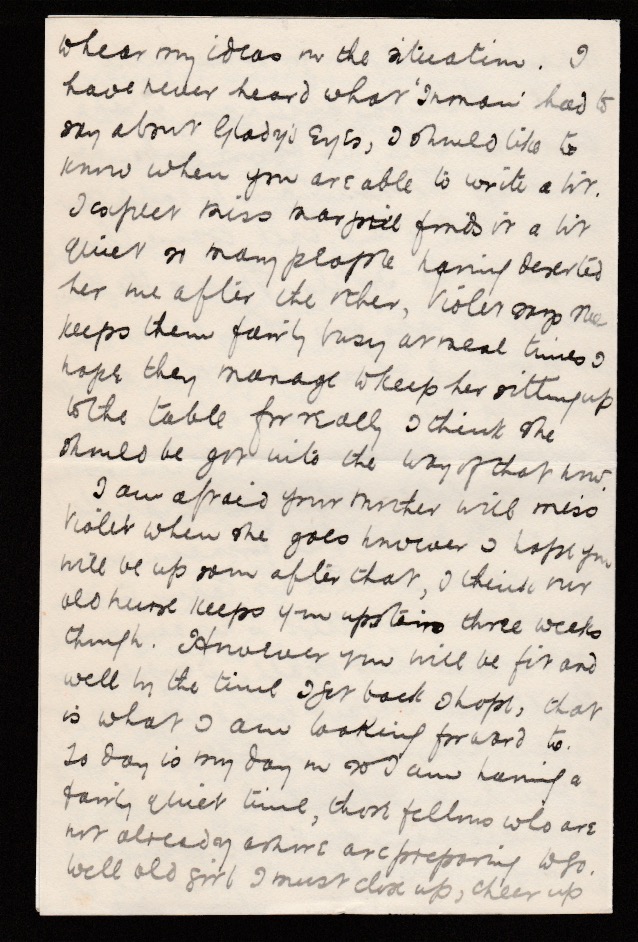 to hear my ideas on the situation. I
have never heard what 'Inman' had to
say about Glady's Eyes, I should like to
know when you are able to write a bit.
I expect Miss finds it a bit
quiet so many people having deserted
her one after the other, Violet says she
keeps them fairly busy at meal times I
hope they manage to keep her sitting up
to the table for really I think she
should be got into the way of that now.
I am afraid your mother will miss
Violet when she goes however I hope you
will be up soon after that, I think our
old nurse keeps you upstairs three weeks
though. However you will be fit and
well by the time I get back I hope, that
is what I am looking forward to.
To day is my day on so I am having a
fairly quiet time, those fellows who are
not already ashore are preparing to go.
Well old girl I must close up, cheer up